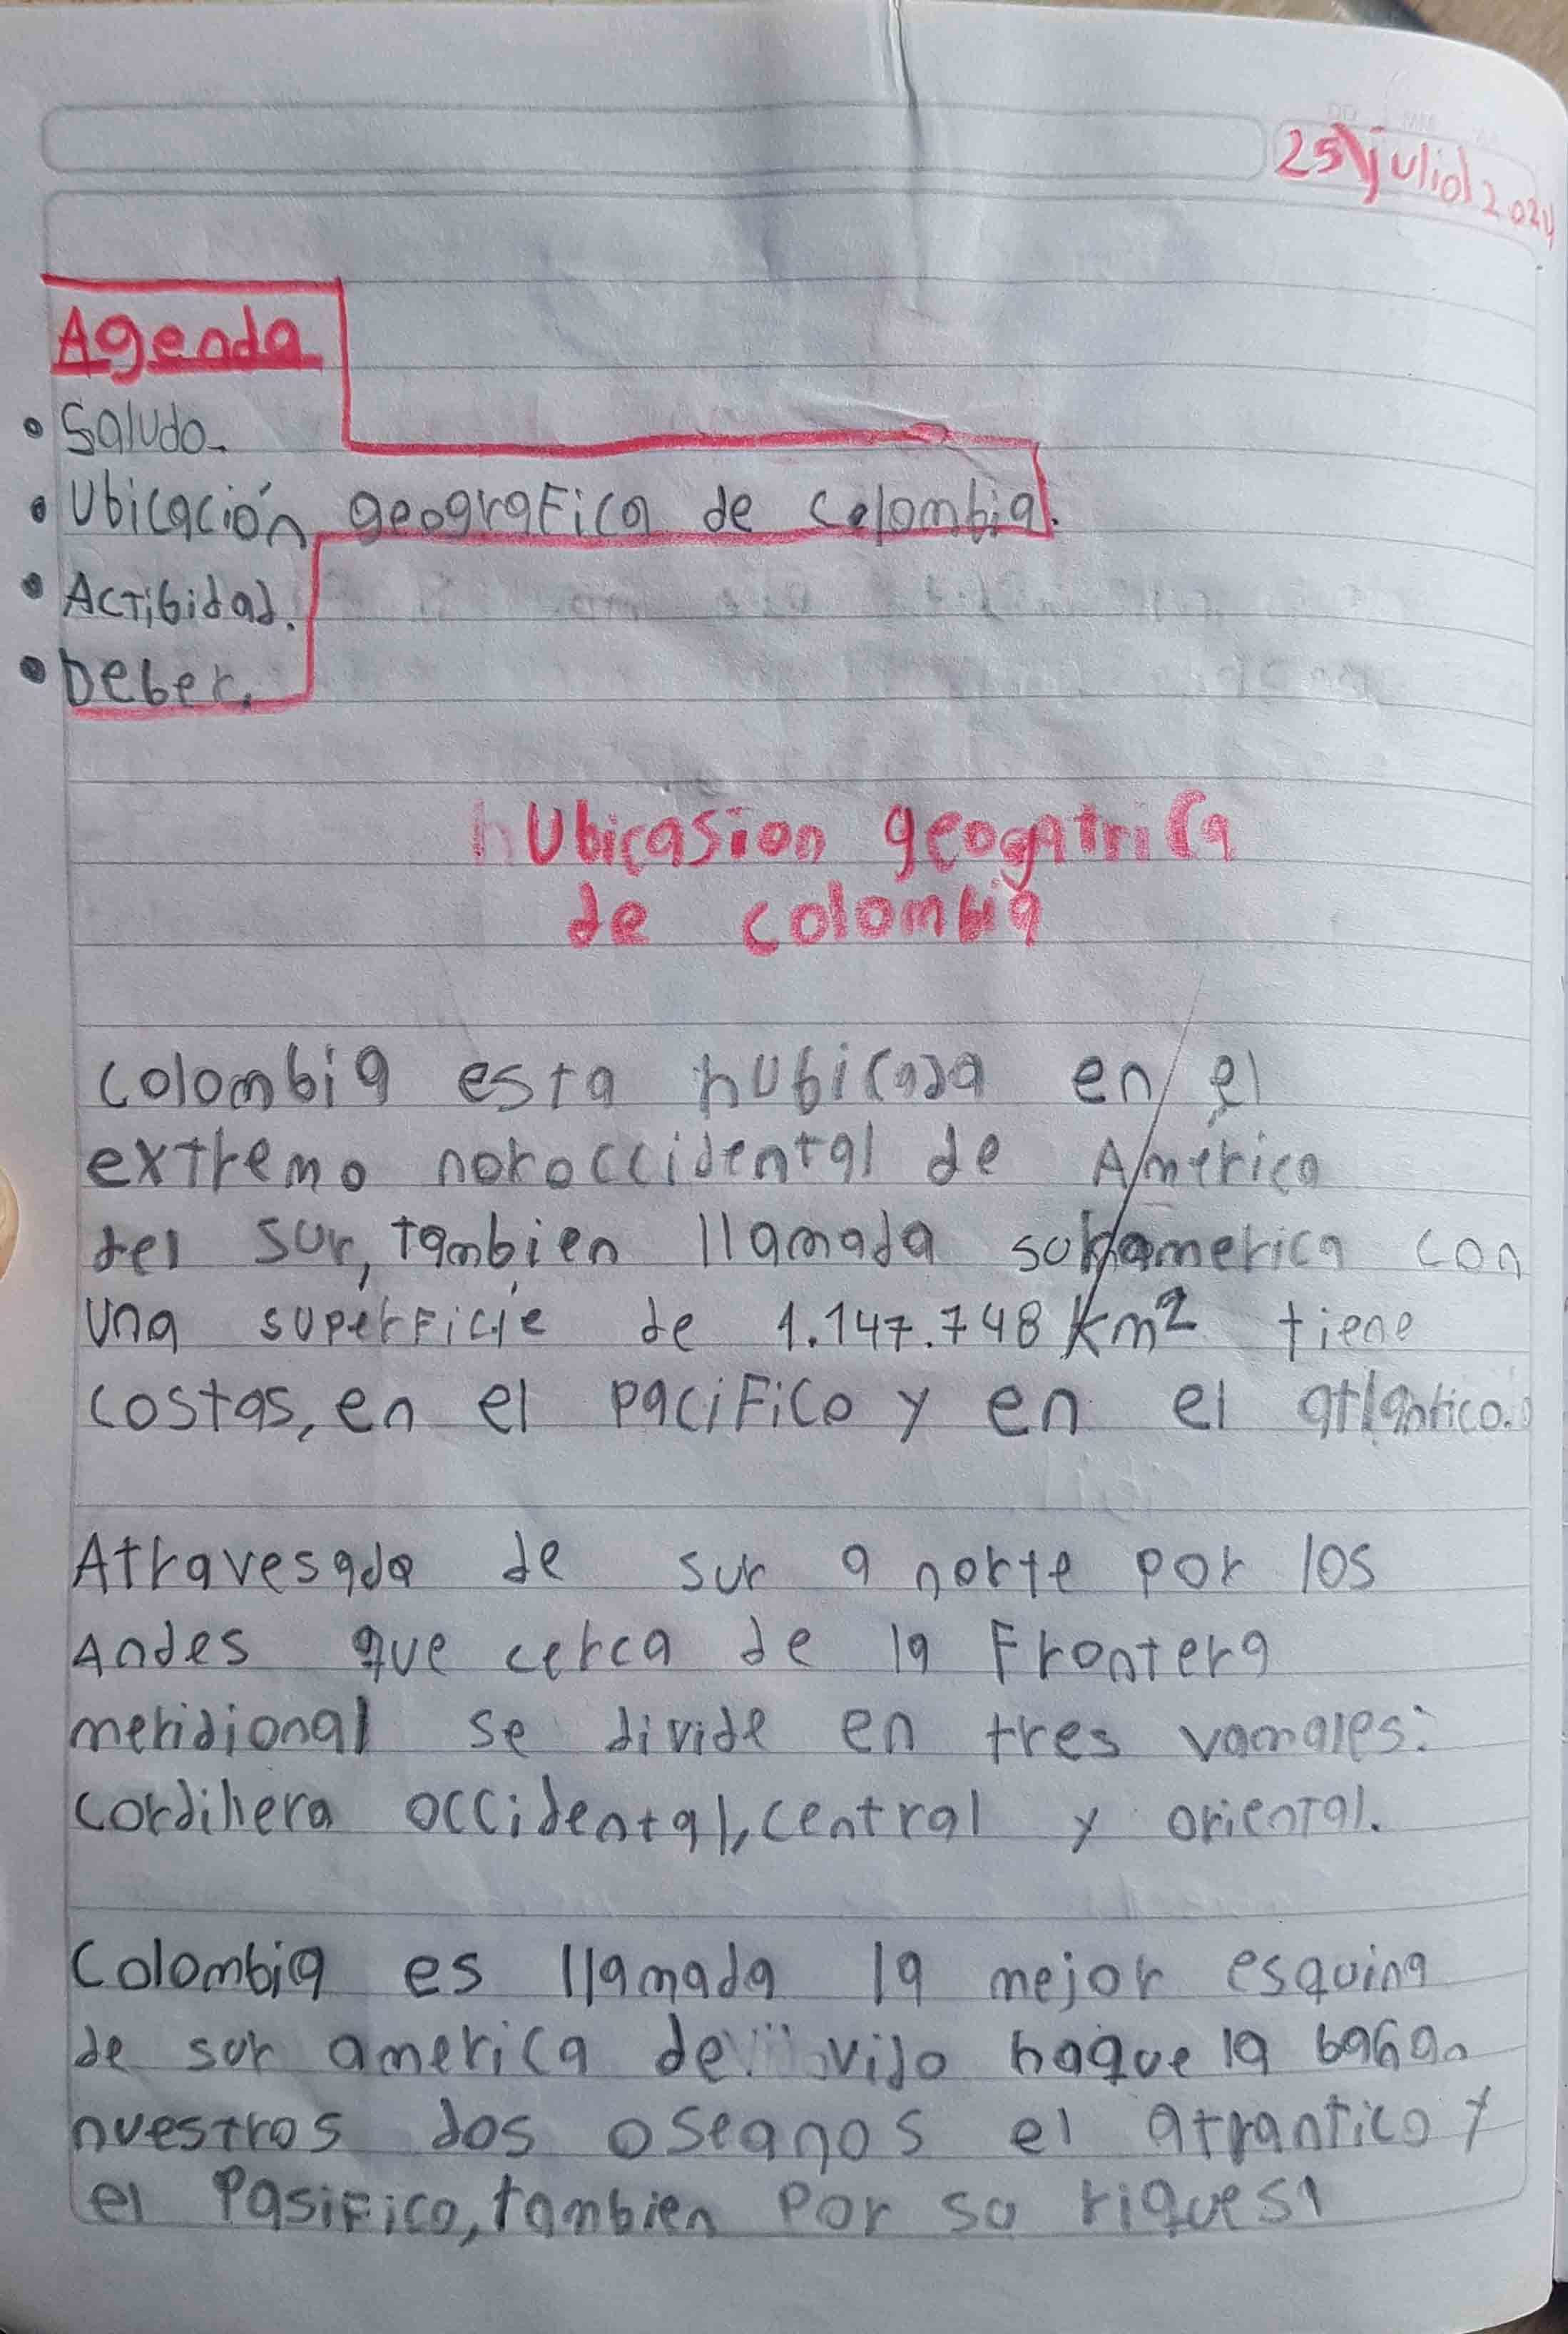 25\julio\2024
Agenda
• Saludo.
• Ubicación geografica de Colombia.
• Actibidad.
• Deber.
Ubicasion geogatrica
de colombia
colombia esta hubicada en el
extremo noroccidental de América
del sur, tambien llamada suramerica con
una superficie de 1.147.748 km2 tiene
costas, en el pacifico y en el atlantico.
Atravesada de sur a norte por los
Andes que cerca de la Frontera
meridional se divide en tres vamales:
cordillera occidental, central y oriental.
Colombia es llamada la mejor esquina
de sur america de vido haque la bañan
nuestros dos oseanos el atrantico y
el Pasifico, tambien por su riquesa